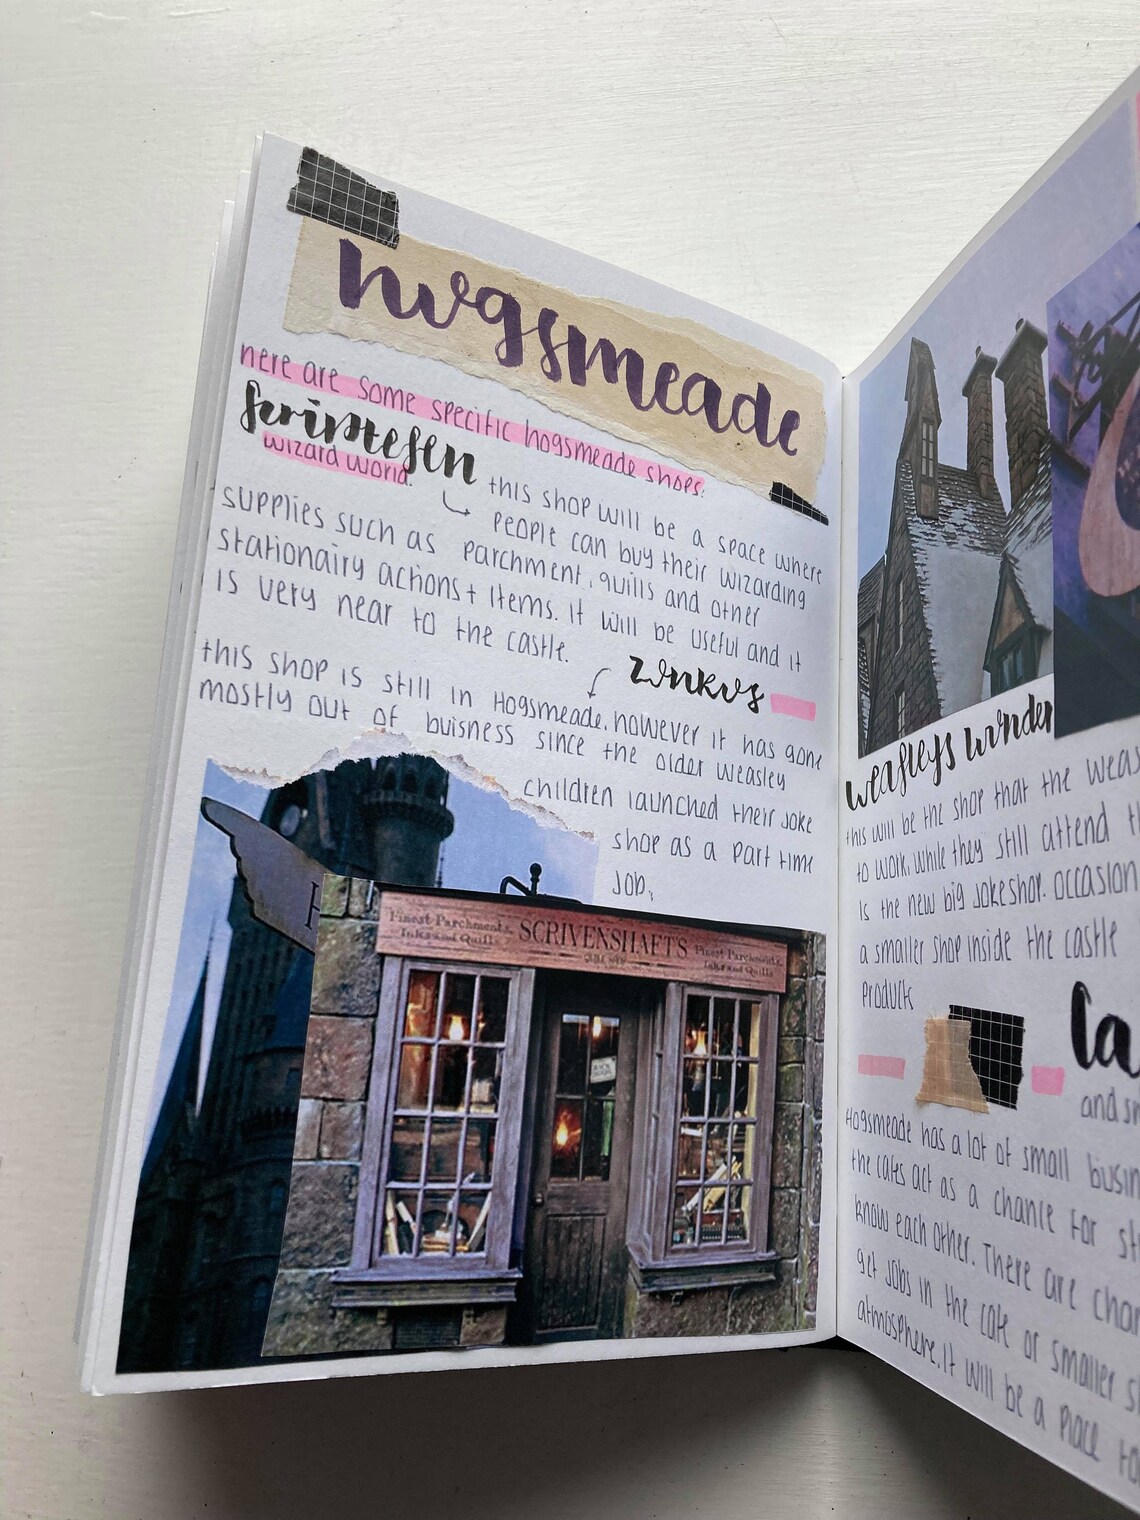 hogsmeade
here are some specific hogsmeade shops.
wizard world.
this shop will be a space where
people can buy their wizarding
supplies such as parchment, quills and other
stationairy actions + items. it will be useful and it
is very near to the castle.
zonkos
this shop is still in Hogsmeade. however it has gone
mostly out of buisness since the older weasley
children launched their joke
shop as a part time
job.
Finest Parchments, Inks and Quills
SCRIVENSHAFT'S
Finest Parchments, Inks and Quills
H
weasleys wonder
this will be the shop that the weas
to work, while they still attend t
is the new big jokeshop. occasion
a smaller shop inside the castle
produck
Ca
and sn
Hogsmeade has a lot of small busin
the cafes act as a chance for st
know each other. There are chan
get jobs in the cafe or smaller s
atmosphere. it will be a place to